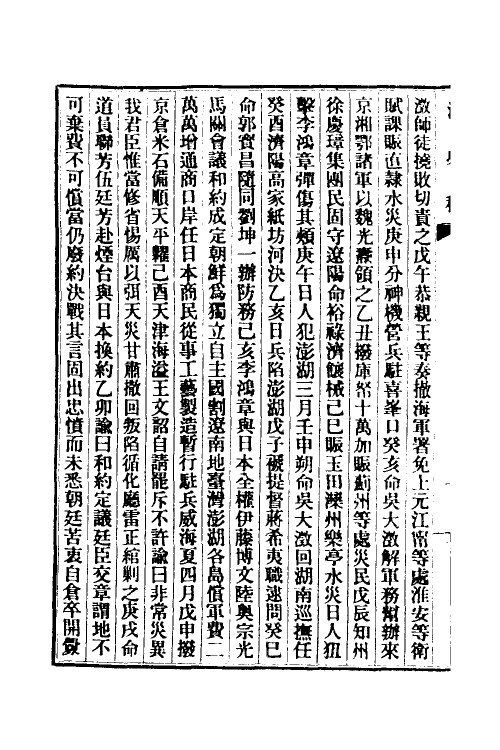 澂師徒撓敗切責之戊午恭親王等奏撤海軍署免上元江甯等處淮安等衛
賦課賑直隷水災庚申分神機營兵駐喜峯口癸亥命吳大澂解軍務幫辦來
京湘鄂諸軍以魏光燾領之乙丑撥庫帑十萬加賑薊州等處災民戊辰知州
徐慶璋集團民固守遼陽命裕祿濟餽械己巳賑玉田灤州樂亭水災日人狙
擊李鴻章彈傷其頰庚午日人犯澎湖三月壬申朔命吳大澂回湖南巡撫任
癸酉濟陽高家紙坊河決乙亥日兵陷澎湖戊子褫提督蔣希夷職逮問癸巳
命郭寶昌隨同劉坤一辦防務己亥李鴻章與日本全權伊藤博文陸奥宗光
馬關會議和約成定朝鮮爲獨立自主國割遼南地臺灣澎湖各島償軍費二
萬萬增通商口岸任日本商民從事工藝製造暫行駐兵威海夏四月戊申撥
京倉米石備順天平糶己酉天津海溢王文韶自請罷斥不許諭曰非常災異
我君臣惟當修省惕厲以弭天災甘肅撒回叛陷循化廳雷正綰剿之庚戌命
道員聯芳伍廷芳赴煙台與日本換約乙卯諭曰和約定議廷臣交章謂地不
可棄費不可償當仍廢約決戰其言固出忠憤而未悉朝廷苦衷自倉卒開釁